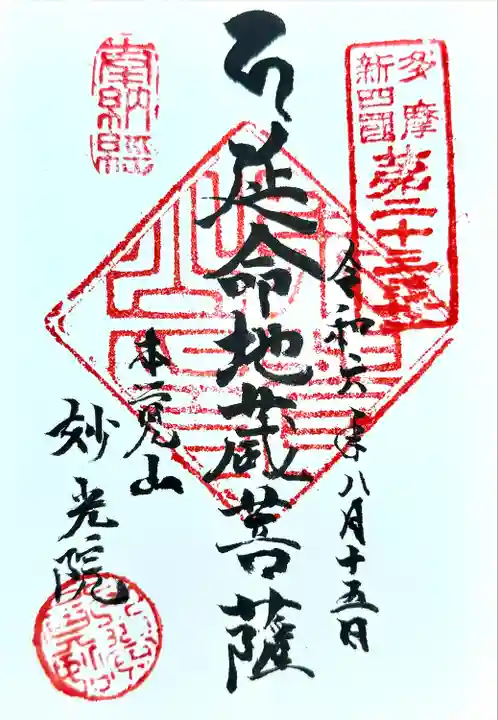 多摩
新四國
第二十三番
奉納経
令和六年八月十五日
延命地蔵菩薩
本覚山
妙光院